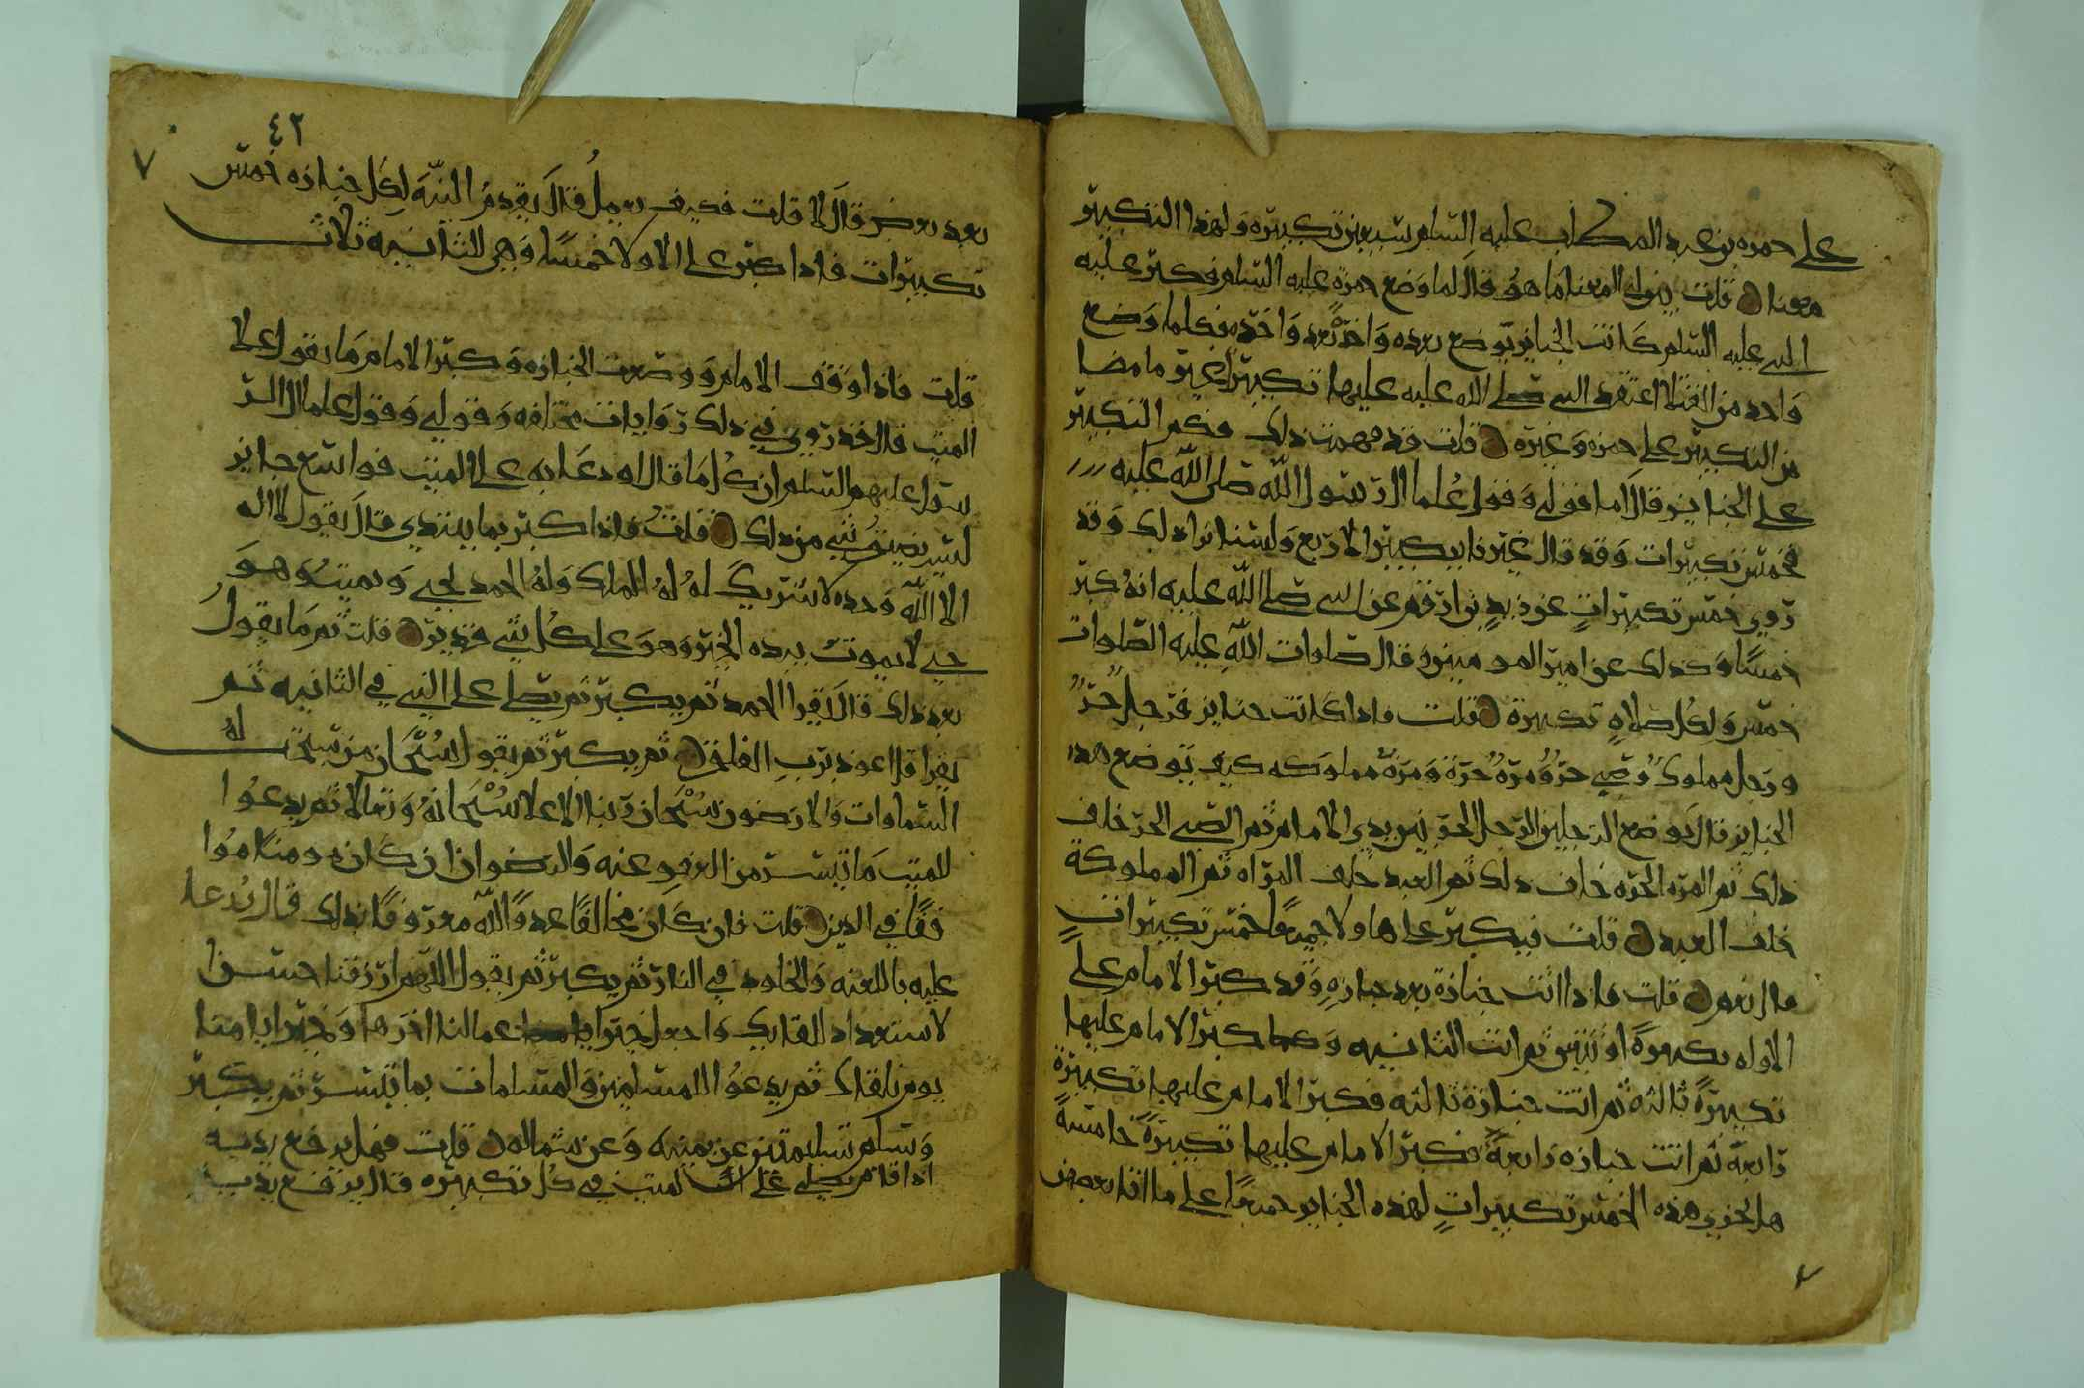 على حمزه بن عبد المطلب عليه السلم سبعين تكبيره ولهذا التكبير
معنا قلت بين لي المعنا ما هو قال لما وضع حمزة عليه السلم فكبر عليه
النبي عليه السلم كانت الجنايز توضع بعده واحدة بعد واحده فكلما وضع
واحد من القتلا اعتقد النبي صلى الله عليه عليها تكبيرا غير ما مضا
من التكبير على حمزه وغيره قلت قد فهمت ذلك فكم التكبير
على الجنايز قال اما قولي وقول علما ال رسول الله صلى الله عليه
فخمس تكبيرات وقد قال غيرنا بتكبير الاربع ولسنا نرا ذلك وقد
روي خمس تكبيرات عن زيد بن ارقم عن النبي صلى الله عليه انه كبر
خمسا وكذلك عن امير المومنين قال صلوات الله عليه الصلوات
خمس ولكل صلاة تكبيرة قلت فاذا كانت جنايز فرجل حر
ورجل مملوك وصبي حر ومرة حرة ومرة مملوكه كيف توضع هذه
الجنايز قال توضع الرجل الحر بين يدي الامام ثم الصبي الحر خلف
ذلك ثم المره الحره خلف ذلك ثم العبد خلف المراه ثم المملوكة
خلف العبد قلت فيكبر على هاولا جميعا خمس تكبيرات
قال نعم قلت فاذا اتت جنازة بعد جنازه وقد كبر الامام على
الاوله تكبيرة او ثنتين ثم اتت الثانيه وكبر الامام عليها
تكبيرة ثالثه ثم اتت جنازة ثالثه فكبر الامام عليها تكبيرة
رابعة ثم اتت جنازه رابعة فكبر الامام عليها تكبيرة خامسة
هل تجزي هذه الخمس تكبيرات لهذه الجنايز جميعا على ما اتا بعض
٤٢
٧
بعد بعض قال لا قلت فكيف يعمل قال يقدم النيه لكل جنازه خمس
تكبيرات فاذا كبر على الاولا خمسا وهي للثانيه ثلاث
قلت فاذا وقف الامام ووضعت الجنازه وكبر الامام ما يقول على
الميت قال قد روي في ذلك روايات مختلفه وقولي وقول علما ال الر
سول عليهم السلم ان كل ما قال او دعا به على الميت فواسع جايز
ليس يضيق شي من ذلك قلت فاذا كبر بما يبتدي قال يقول لا اله
الا الله وحده لا شريك له له الملك وله الحمد يحيي ويميت وهو
حي لا يموت بيده الخير وهو على كل شي قدير قلت ثم ما يقول
بعد ذلك قال يقرا الحمد ثم يكبر ثم يصلي على النبي في الثانيه ثم
يقرا قل اعوذ برب الفلق ثم يكبر ثم يقول سبحان من سبحت له
السماوات والارضون سبحان ربنا الاعلا سبحانه وتعالا ثم يدعوا
للميت ما تيسر من العفو عنه والرضوان ان كان مومنا موا
فقا في الدين قلت فان كان مخالفا عدوا لله معروفا بذلك قال يدعا
عليه باللعنه والخلود في النار ثم يكبر ثم يقول اللهم ارزقنا حسن
الاستعداد للقايك واجعل خير اعمالنا اخرها وخير ايامنا
يوم نلقاك ثم يدعوا للمسلمين والمسلمات بما تيسر ثم يكبر
وسلم تسليمتين عن يمينه وعن شماله قلت فهل يرفع يديه
اذا قام يصلي على الميت في كل تكبيره قال يرفع يديه